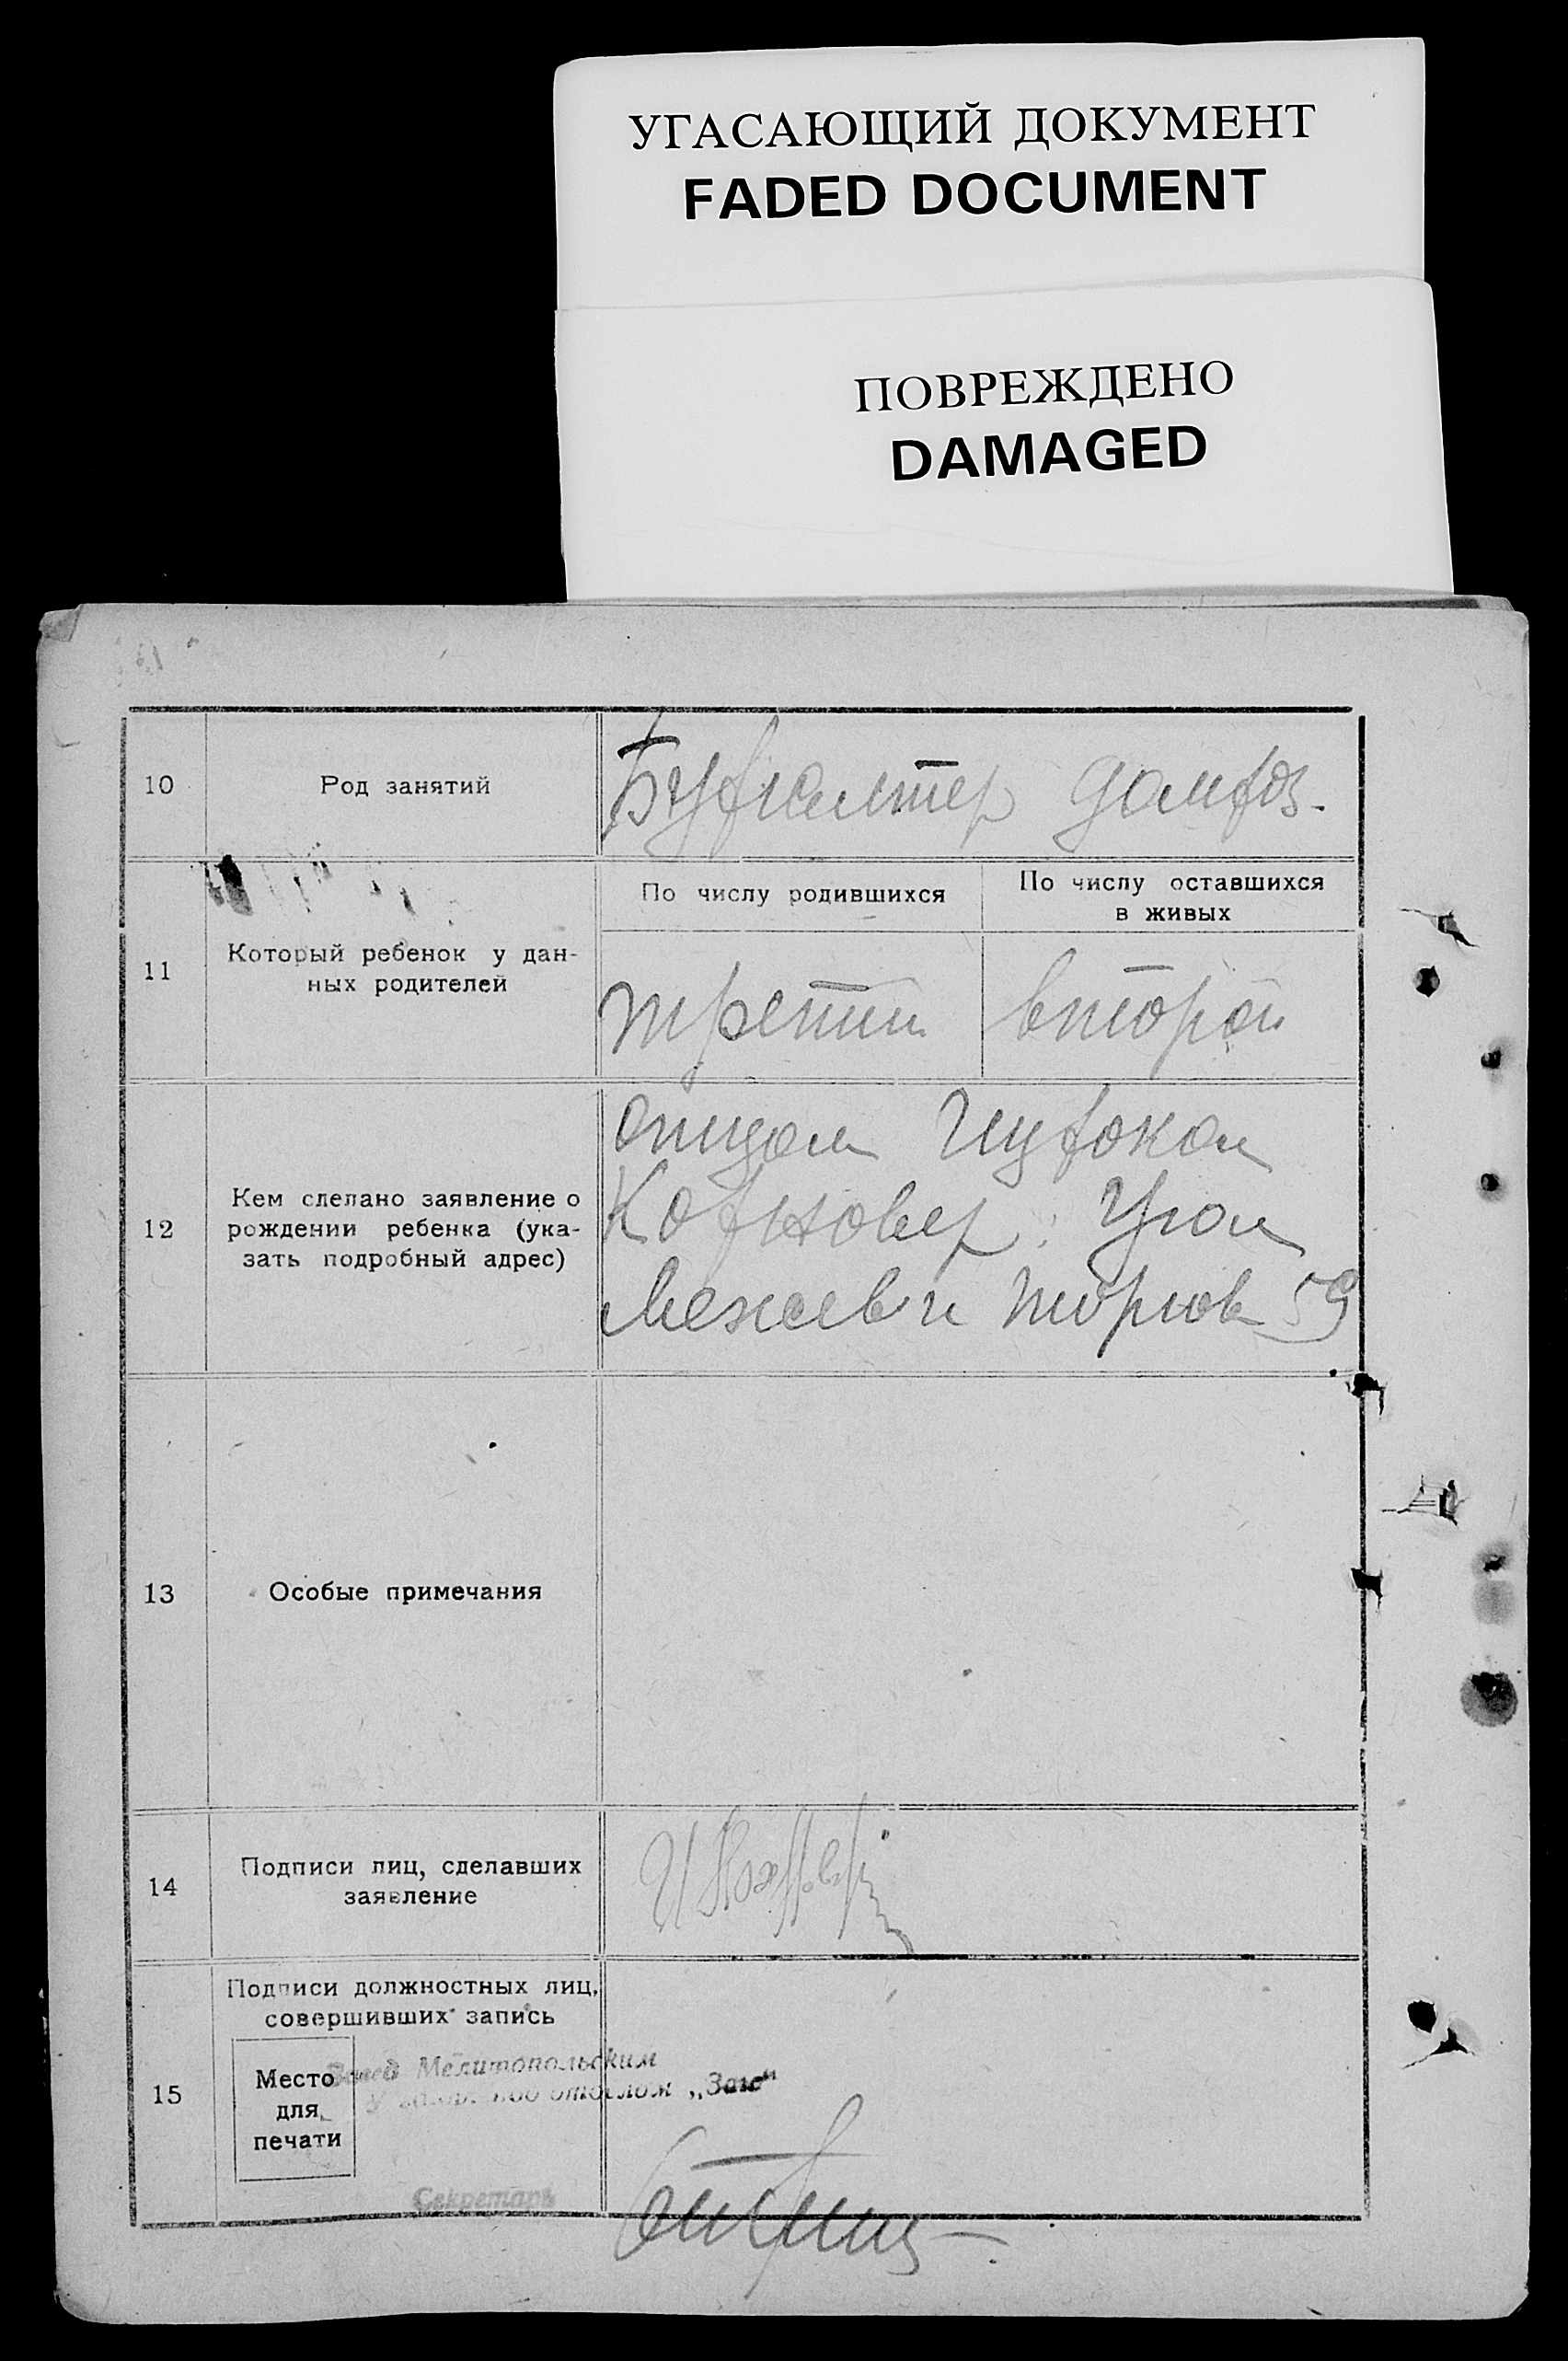 УГАСАЮЩИЙ ДОКУМЕНТ
FADED DOCUMENT
ПОВРЕЖДЕНО
DAMAGED
10
Род занятий
Бухгалтер
11
Который ребенок у дан-
ных родителей
По числу родившихся
По числу оставшихся
в живых
третий
второй
12
Кем сделано заявление о
рождении ребенка (ука-
зать подробный адрес)
отцом
59
13
Особые примечания
14
Подписи лиц, сделавших
заявление
15
Подписи должностных лиц,
совершивших запись
Место
для
печати
Завед Мелитопольским
отделом „Загс“
Секретарь